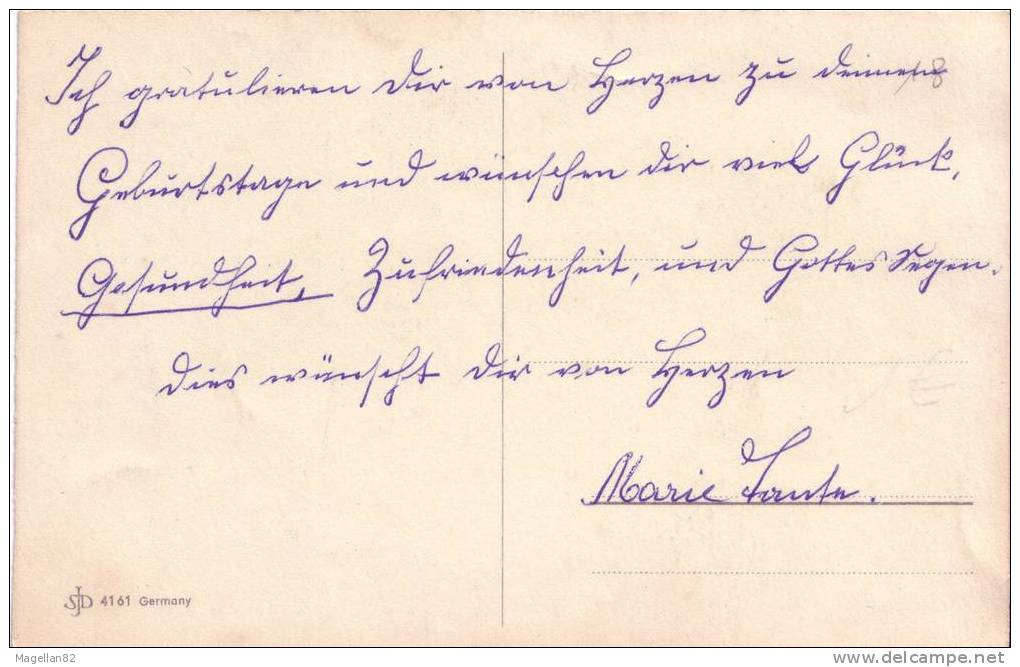 Ich gratulieren Dir von Herzen zu deinem
Geburtstage und wünschen dir viel Glück,
Gesundheit, Zufriedenheit, und Gottes Segen.
Dies wünscht Dir von Herzen
Marie Tante.
SJD 4161 Germany
Magellan82
www.delcampe.net